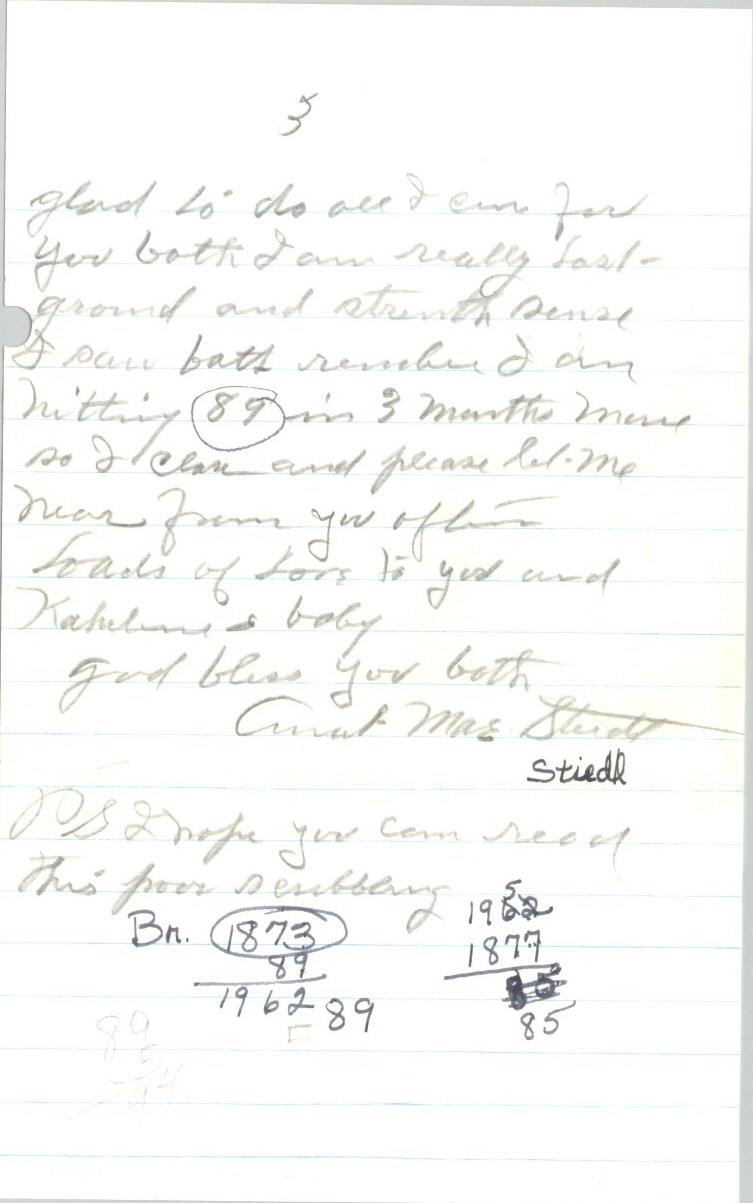 3
glad to do all I can for
you both I am really Lost-
ground and strenth sense
I saw both I am
hitting 89 in 3 months more
so I close and please let-me
hear from you often
Loads of Love to you and
baby
god bless you both
Aunt Mae Stiedl
Stiedl
PS I hope you can read
this poor scribbling
Bn. 1873
89
1962 89
1962
5
1877
85
85
89
5
94